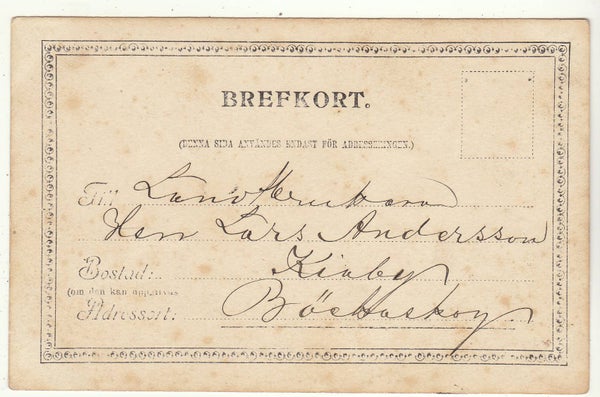 BREFKORT.
(DENNA SIDA ANVÄNDES ENDAST FÖR ADRESSERINGEN.)
Till Landtbrukaren
Herr Lars Andersson
Bostad: Kiaby
(om den kan uppgifvas)
Adressort: